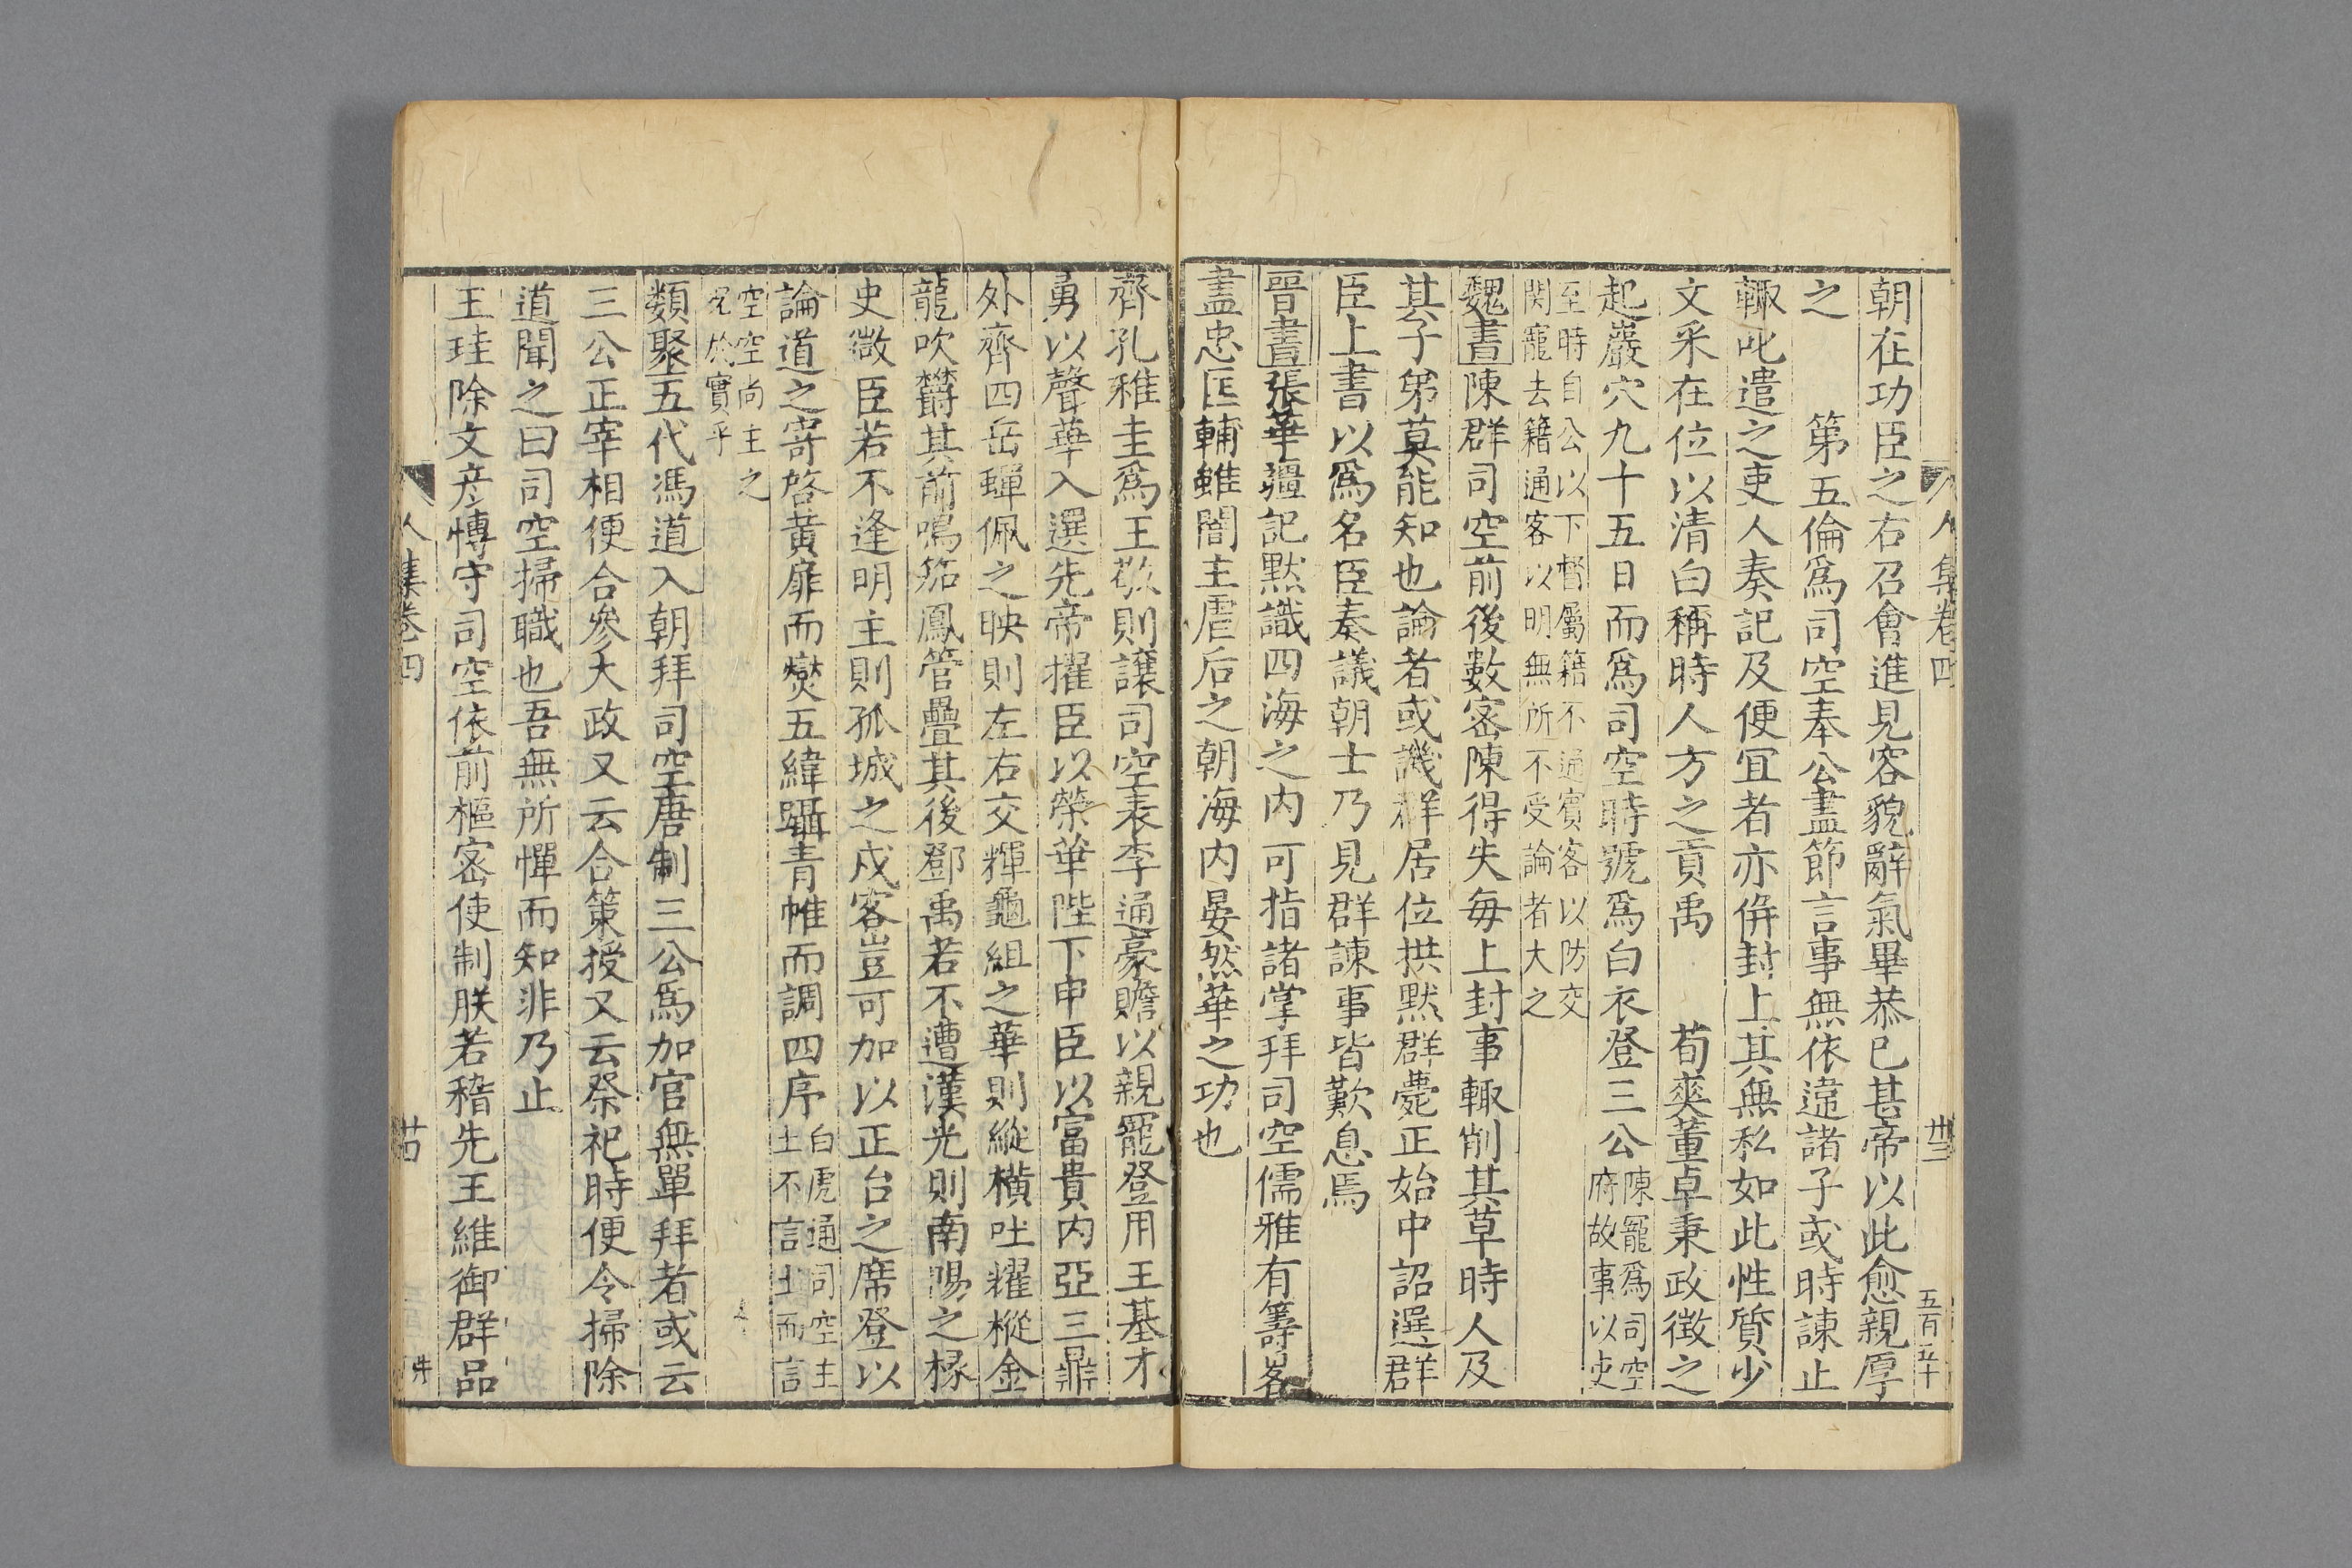 人集卷四
卅三
五百五十
朝在功臣之右召會進見容貌辭氣畢恭已甚帝以此愈親厚
之　第五倫爲司空奉公盡節言事無依違諸子或時諫止
輙叱遣之吏人奏記及便冝者亦倂封上其無私如此性質少
文采在位以清白稱時人方之貢禹　荀爽董卓秉政徵之
起巖穴九十五日而爲司空時號爲白衣登三公
陳寵爲司空
府故事以吏
至時自公以下督屬籍不通賓客以防交
関寵去籍通客以明無所不受論者大之
魏書陳群司空前後數密陳得失每上封事輙削其草時人及
其子弟莫能知也論者或譏群居位拱默群薨正始中詔選群
臣上書以爲名臣奏議朝士乃見群諫事皆歎息焉
晉書張華彊記默識四海之内可指諸掌拜司空儒雅有籌畧
盡忠匡輔雖闇主虐后之朝海内晏然華之功也
齊孔稚圭爲王敬則讓司空表李通豪贍以親寵登用王基才
勇以聲華入選先帝擢臣以榮華陛下申臣以富貴内亞三鼎
外齊四岳蟬佩之映則左右交輝龜組之華則縱橫吐耀樅金
龍吹欝其前鳴笳鳳管疊其後鄧禹若不遭漢光則南陽之椽
史微臣若不逢明主則孤城之戍客豈可加以正台之席登以
論道之寄啓黄扉而爕五緯躡青帷而調四序
白虎通司空主
土不言土而言
空空尚主之
况於實乎
類聚五代馮道入朝拜司空唐制三公爲加官無單拜者或云
三公正宰相便合參大政又云合策授又云祭祀時便令掃除
道聞之曰司空掃職也吾無所憚而知非乃止
王珪除文彦愽守司空依前樞密使制朕若稽先王維御群品
人集卷四